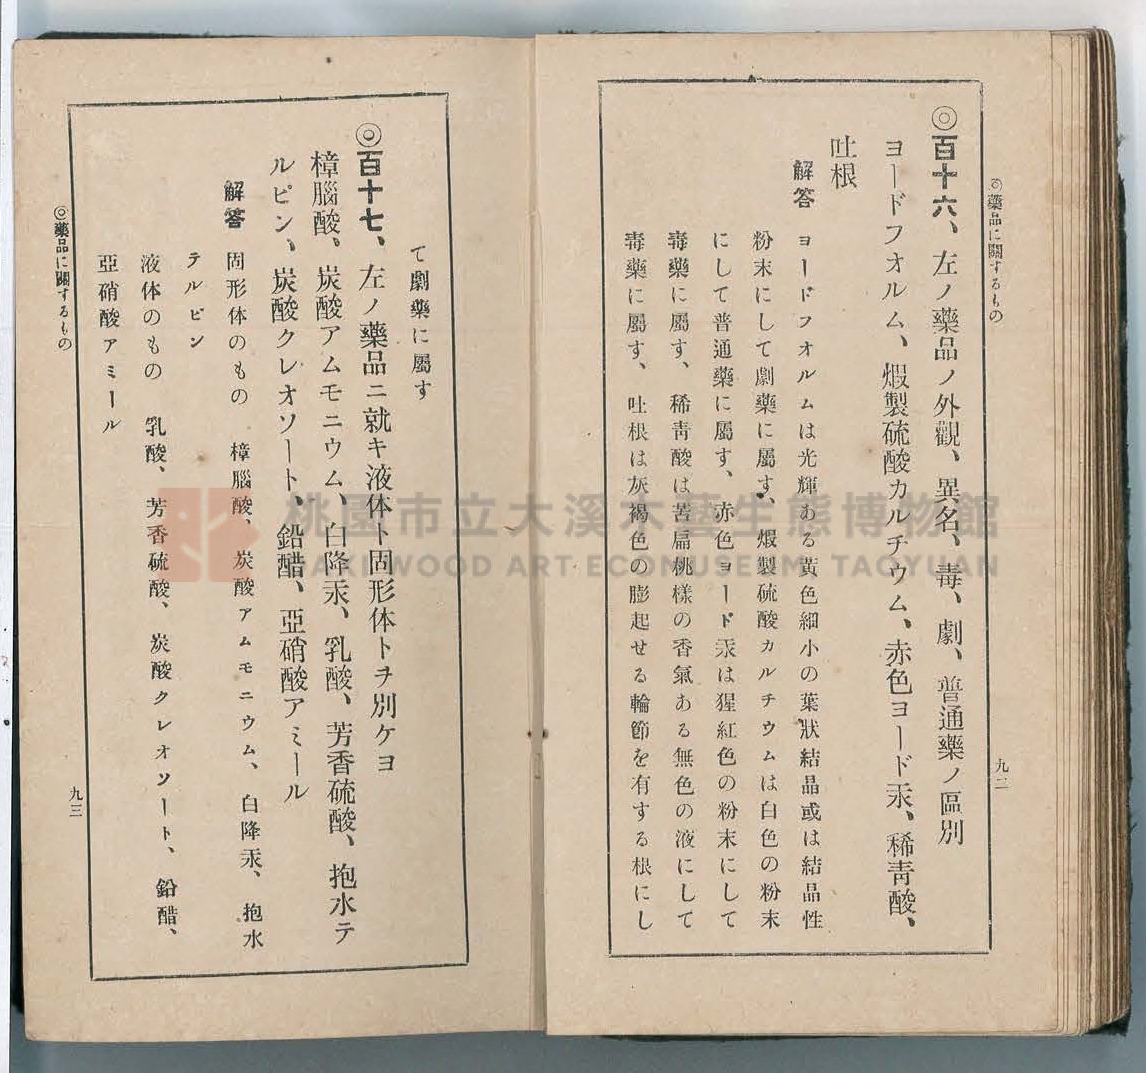 ◎藥品に關するもの
九二
◎百十六、左ノ藥品ノ外觀、異名、毒、劇、普通藥ノ區別
ヨードフオルム、煆製硫酸カルチウム、赤色ヨード汞、稀靑酸、
吐根
解答 ヨードフオルムは光輝ある黃色細小の葉狀結晶或は結晶性
粉末にして劇藥に屬す、煆製硫酸カルチウムは白色の粉末
にして普通藥に屬す、赤色ヨード汞は猩紅色の粉末にして
毒藥に屬す、稀靑酸は苦扁桃樣の香氣ある無色の液にして
毒藥に屬す、吐根は灰褐色の膨起せる輪節を有する根にし
て劇藥に屬す
◎百十七、左ノ藥品ニ就キ液体ト固形体トヲ別ケヨ
樟腦酸、炭酸アムモニウム、白降汞、乳酸、芳香硫酸、抱水テ
ルピン、炭酸クレオソート、鉛醋、亞硝酸アミール
解答 固形体のもの 樟腦酸、炭酸アムモニウム、白降汞、抱水
テルピン
液体のもの 乳酸、芳香硫酸、炭酸クレオソート、鉛醋、
亞硝酸アミール
◎藥品に關するもの
九三
桃園市立大溪木藝生態博物館
DAXI WOOD ART ECOMUSEUM, TAOYUAN